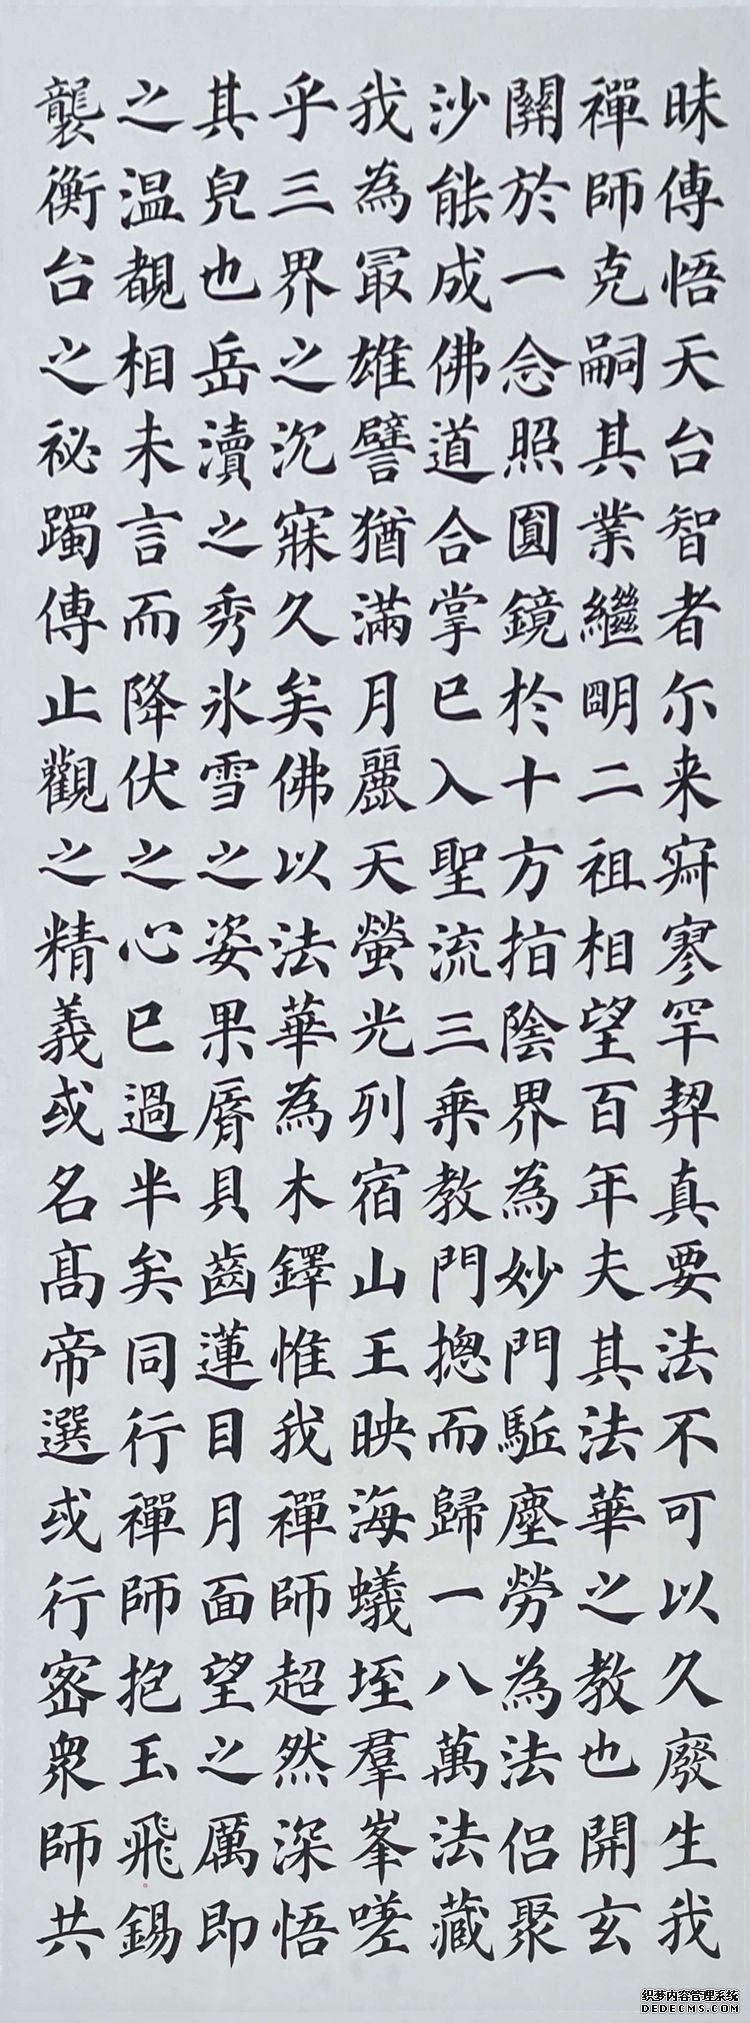 昧傳悟天台智者尓来寂寥罕契真要法不可以久廢生我
禪師克嗣其業繼明二祖相望百年夫其法華之教也開玄
關於一念照圓鏡於十方指陰界為妙門駈塵勞為法侣聚
沙能成佛道合掌已入聖流三乘教門揔而歸一八萬法藏
我為冣雄譬猶滿月麗天螢光列宿山王映海蟻垤羣峯嗟
乎三界之沉寐久矣佛以法華為木鐸惟我禪師超然深悟
其皃也岳瀆之秀氷雪之姿果脣貝齒蓮目月面望之厲即
之温覩相未言而降伏之心已過半矣同行禪師抱玉飛錫
襲衡台之祕躅傳止觀之精義或名髙帝選或行密衆師共
织梦内容管理系统
DEDECMS.COM